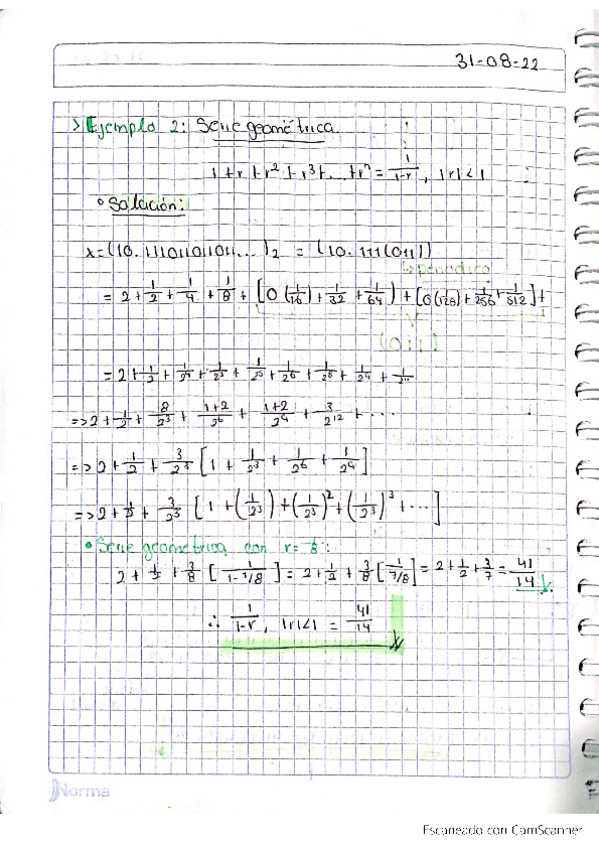 31-08-22
> Ejemplo 2: Serie geométrica.
1 + r + r² + r³ + ... + rⁿ = 1/(1-r), |r| < 1
• Solución:
x = (10.111011011011...)₂ = (10.111(011))
↳ periódico
= 2 + 1/2 + 1/4 + 1/8 + [0(1/16) + 1/32 + 1/64) + [0(128) + 1/256 + 1/512] +
(011)
= 2 + 1/2 + 1/2² + 1/2³ + 1/2⁵ + 1/2⁶ + 1/2⁸ + 1/2⁹ +
=> 2 + 1/2 + 3/2³ + (1+2)/2⁶ + (1+2)/2⁹ + 3/2¹² + ...
=> 2 + 1/2 + 3/2³ [1 + 1/2³ + 1/2⁶ + 1/2⁹]
=> 2 + 1/2 + 3/2³ [1 + (1/2³) + (1/2³)² + (1/2³)³ + ...]
• Serie geométrica, con r = 1/8:
2 + 1/2 + 3/8 [1/(1-1/8)] = 2 + 1/2 + 3/8 [1/(7/8)] = 2 + 1/2 + 3/7 = 41/14
∴ 1/(1-r), |r|<1 = 41/14
Norma
Escaneado con CamScanner